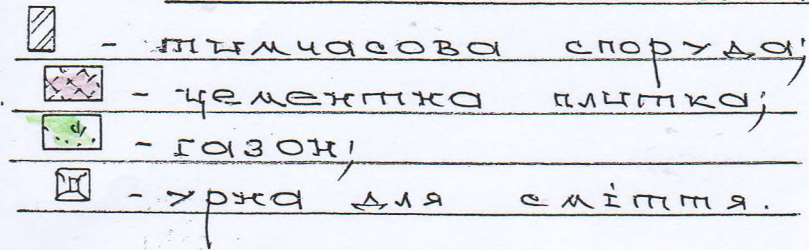 - тимчасова споруда;
- цементна плитка;
- газон;
- урна для сміття.